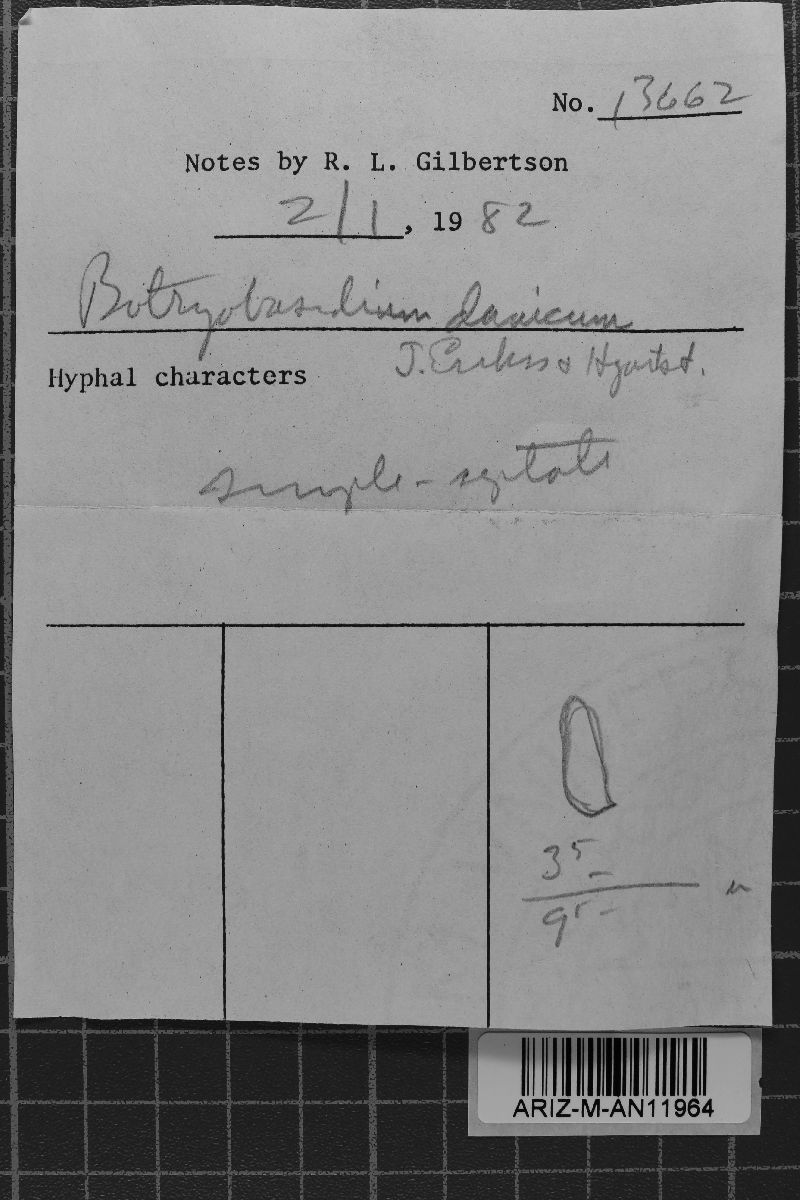 No. 13662
Notes by R. L. Gilbertson
2/1, 1982
Botryobasidium danicum
J. Erikss & Hjortst.
Hyphal characters
simple-septate
3⁵-
9⁵- u
ARIZ-M-AN11964